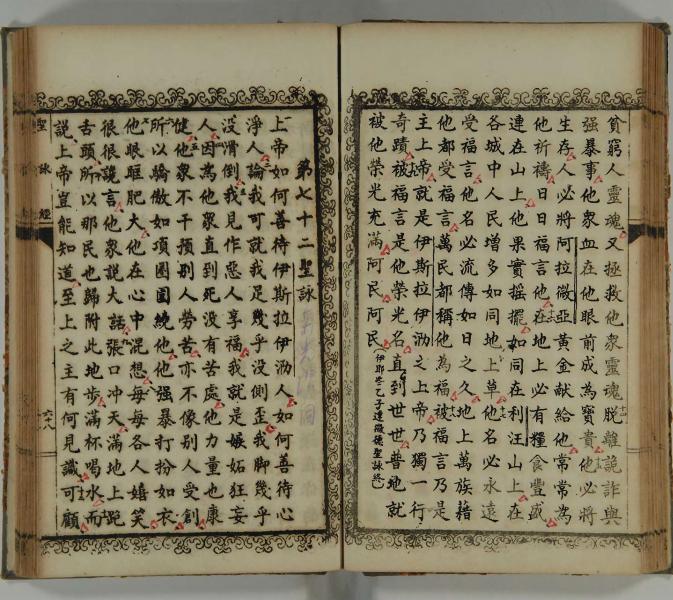 貧窮人靈魂又拯救他眾靈魂脫離詭詐與
強暴事他眾血在他眼前成為寶貴他必將
生存人必將阿拉微亞黃金献給他常常為
他祈禱日日福言他在地上必有糧食豐盛
連在山上他果實搖擺如同在利汪山上在
各城中人民增多如同地上草他名必永遠
受福言他名必流傳如日之久地上萬族藉
他都受福言萬民都稱他為福被福言乃是
主上帝就是伊斯拉伊泐之上帝乃獨一行
奇蹟被福言是他榮光名直到世世普地就
被他榮光充滿阿民阿民
達微德聖詠終
第七十二聖詠
上帝如何善待伊斯拉伊泐人如何善待心
淨人論我可就我足幾乎沒側歪我脚幾乎
沒滑倒我見作惡人享福我就是嫉妬狂妄
人因為他眾直到死沒有苦處他力量也康
健他眾不干預別人勞苦亦不像別人受創
所以驕傲如項圈圍繞他他強暴打扮如衣
他眼眶肥大他在心中混想每每各人嬉笑
很很說言他眾說大話張口冲天滿地上跑
舌頭所以那民也歸附此地步滿杯喝水而
說上帝豈能知道至上之主有何見識可顧
聖詠經